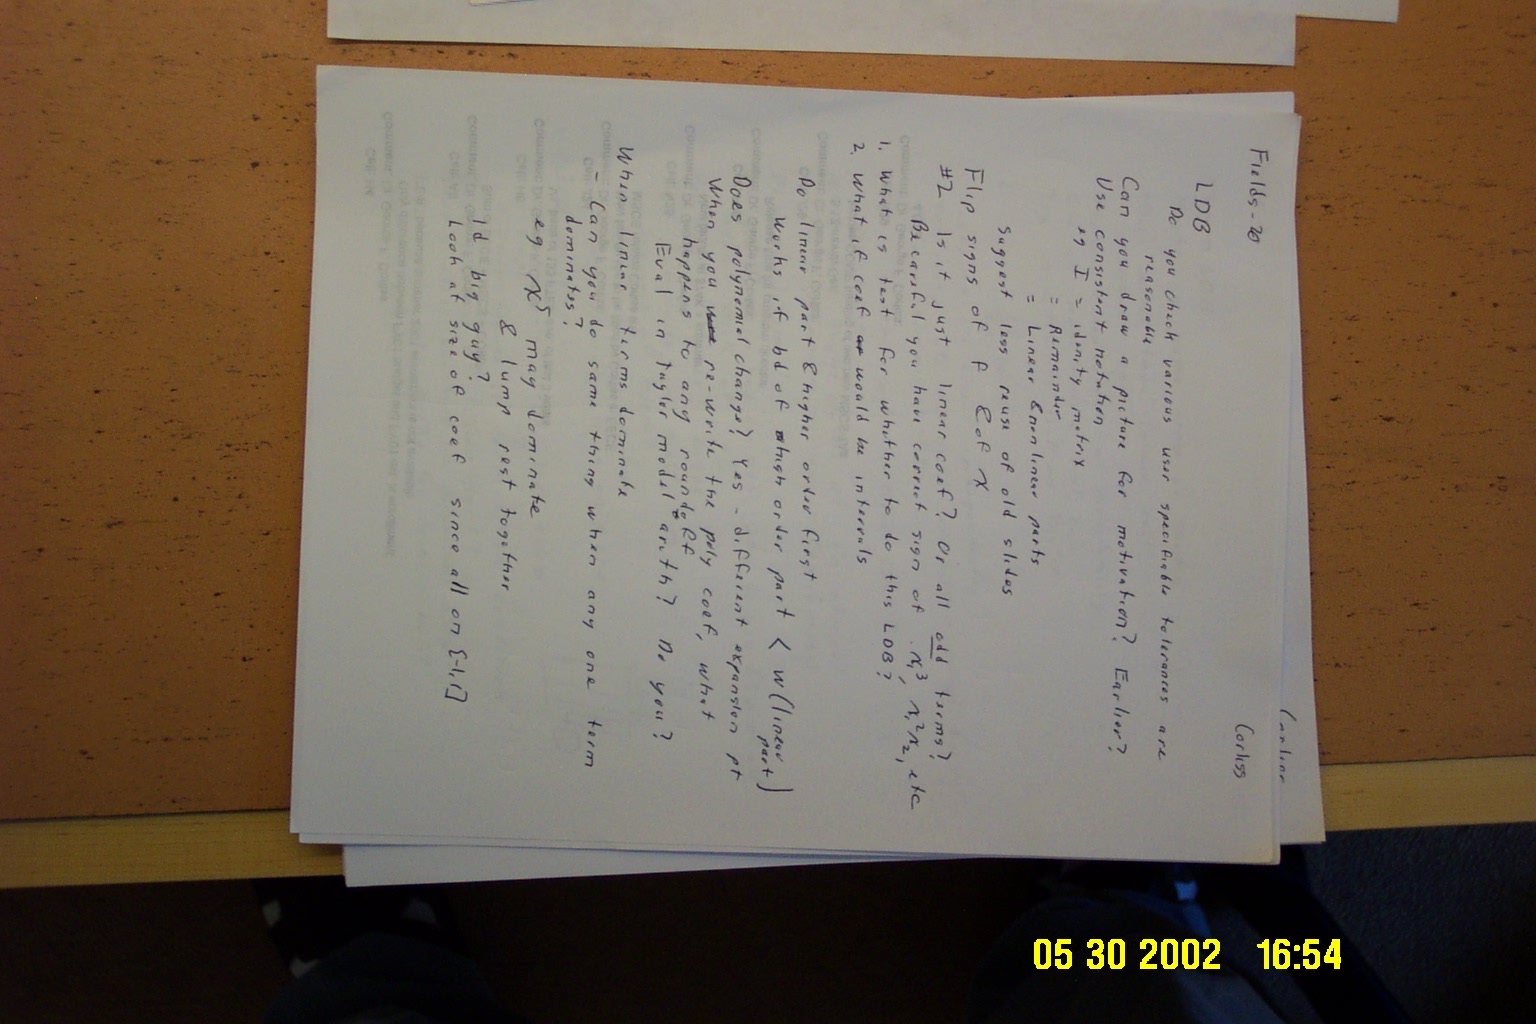 Fields-20
Corliss
LDB
Do you check various user specifiable tolerances are
reasonable
Can you draw a picture for motivation? Earlier?
Use consistent notation
eg I = idenity matrix
= Remainder
= Linear & nonlinear parts
Suggest less reuse of old slides
Flip signs of f & of x
#2 Is it just linear coef? Or all odd terms?
Be careful you have correct sign of x₁³, x₁²x₂, etc
1. What is test for whether to do this LDB?
2. What if coef would be intervals
Do linear part & higher order first
Works if bd of high order part < w(linear
part)
Does polynomial change? Yes - different expansion pt
When you re-write the poly coef, what
happens to any roundoff
Eval in Taylor model arith? Do you?
When linear terms dominate
- Can you do same thing when any one term
dominates?
eg x⁵ may dominate
& lump rest together
Id big guy?
Look at size of coef since all on [-1,1]
05 30 2002 16:54